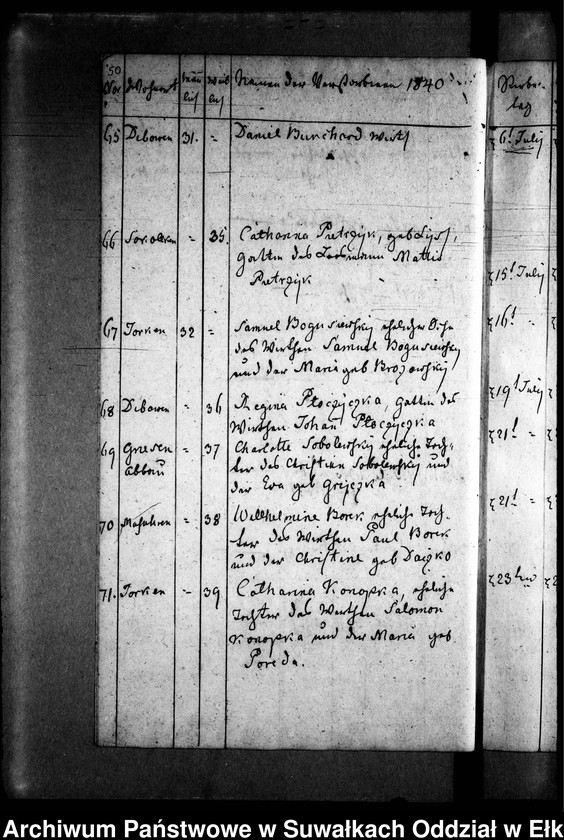 50
No. Wohnort männ weib Namen der Verstorbenen 1840 Sterbe-
lich lich tag
65 Dibowen 31. - Daniel Burchard Wirth 6t July
66 Sokolken - 35. Catharina Pietrzyk, geb Lyss,
Gattin des Losmann Mathis
Pietrzyk 15t July
67 Jorken 32 - Samuel Bogusewsky eheliche Sohn 16t -
des Wirthen Samuel Bogusewsky
und der Maria geb Brozowsky
68 Dibowen - 36 Regina Ploczyczka, Gattin des 19t July
Wirthen Johan Ploczyczka
69 Griesen - 37 Charlotte Sobolewsky eheliche Toch- 21t -
abbau ter des Christian Sobolewsky und
der Eva geb
70 - 38 Wilhelmine Borek eheliche Toch- 21t -
ter des Wirthen Paul Borek
und der Christine geb Daczko
71. Jorken - 39 Catharina Konopka, eheliche 23ten
Tochter des Wirthen Salomon
Konopka und der Maria geb
Poreda.
Archiwum Państwowe w Suwałkach Oddział w Ełk